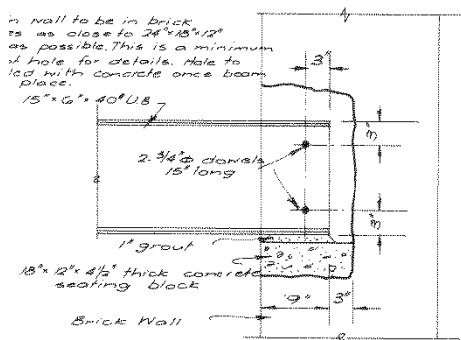 in wall to be in brick
as close to 24"×18"×12"
as possible. This is a minimum
hole for details. Hole to
with concrete once beam
place.
3"
15" × 6" × 40# U.B
3"
2 - 3/4" Φ dowels
15" long
3"
1" grout
18" × 12" × 4 1/2" thick concrete
seating block
9" 3"
Brick Wall